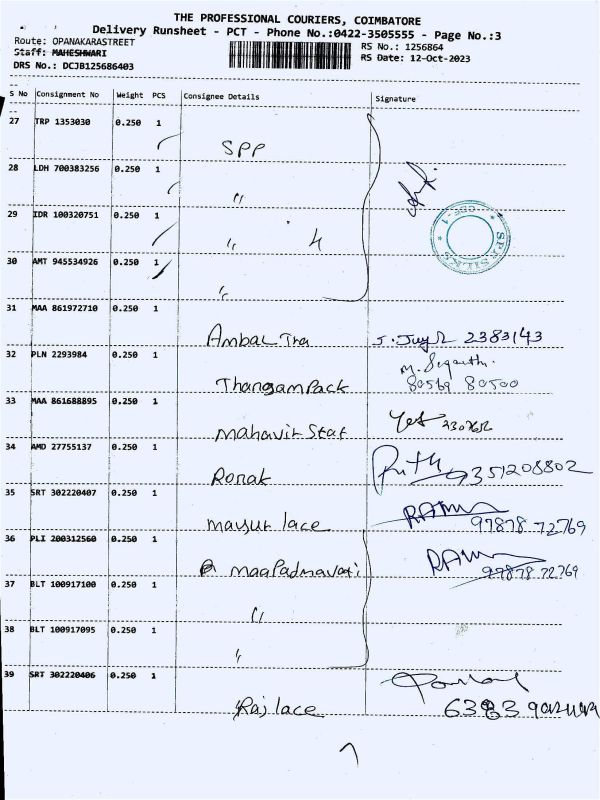 THE PROFESSIONAL COURIERS, COIMBATORE
Delivery Runsheet - PCT - Phone No.:0422-3505555 - Page No.:3
Route: OPANAKARASTREET
Staff: MAHESHWARI
DRS No.: DCJB125686403
RS No.: 1256864
RS Date: 12-Oct-2023
S No Consignment No Weight PCS Consignee Details Signature
27 TRP 1353030 0.250 1
SPP
28 LDH 700383256 0.250 1
"
29 IDR 100320751 0.250 1
" 4
SPP SILKS
CBE - 1
30 AMT 945534926 0.250 1
"
31 MAA 861972710 0.250 1
Ambal Tra 2383143
32 PLN 2293984 0.250 1
Thangam Pack 80569 80500
33 MAA 861688895 0.250 1
mahavir Stat
34 AMD 27755137 0.250 1
Ronak 9351208802
35 SRT 302220407 0.250 1
mayur lace RAMU 97878 72769
36 PLI 200312560 0.250 1
maa Padmavati RAMU 97878 72769
37 BLT 100917100 0.250 1
"
38 BLT 100917095 0.250 1
"
39 SRT 302220406 0.250 1
Raj lace 6383